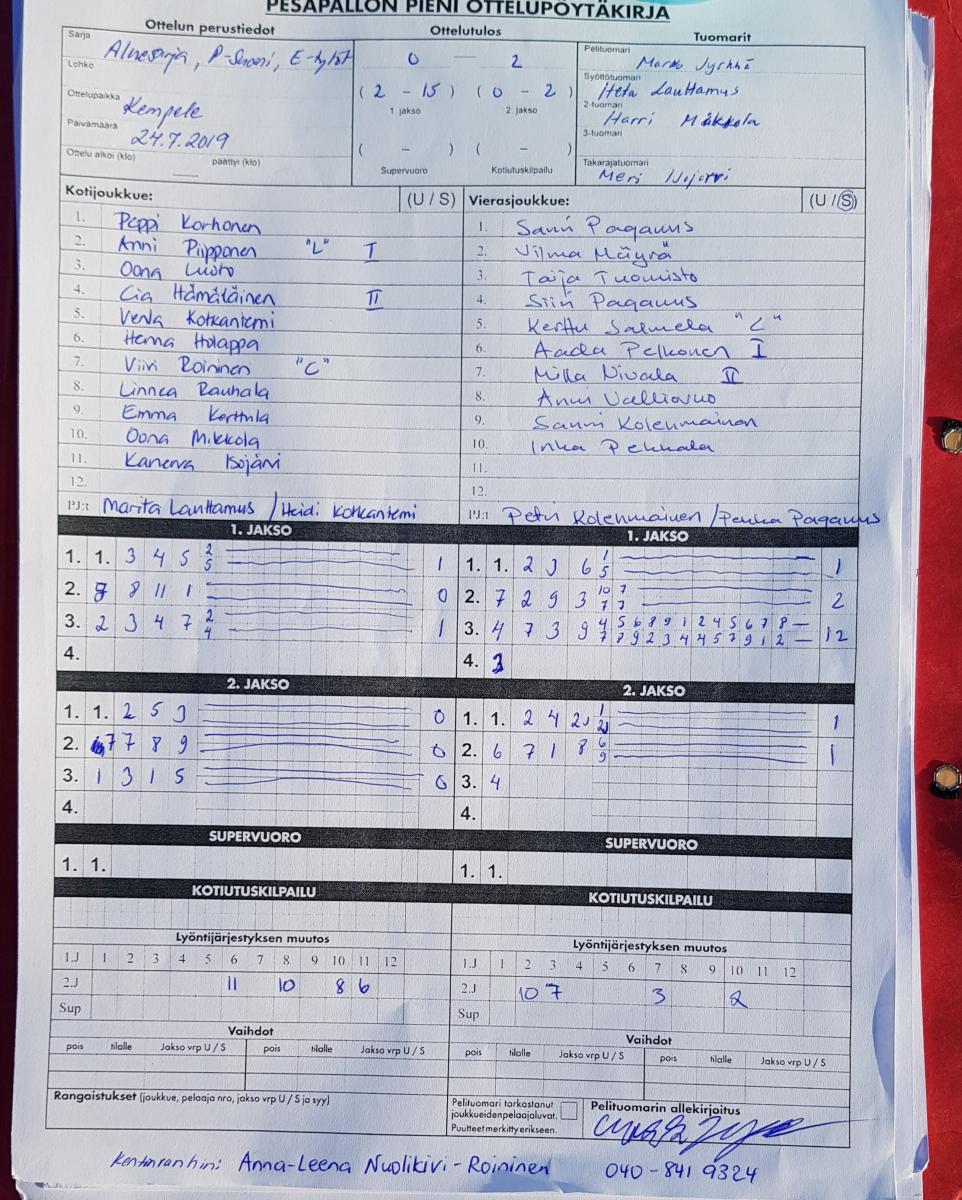 PESÄPALLON PIENI OTTELUPÖYTÄKIRJA
Ottelun perustiedot
Ottelutulos
Tuomarit
Sarja
Aluesarja, P-Suomi, E-tytöt
Lohko
Ottelupaikka
Kempele
Päivämäärä
24.7.2019
Ottelu alkoi (klo) päättyi (klo)
0 – 2
(2 – 15) (0 – 2)
1 jakso 2. jakso
( – ) ( – )
Supervuoro Kotiutuskilpailu
Pelituomari
Syöttötuomari
Heta Lauttamus
2-tuomari
Harri Mäkkola
3-tuomari
Takarajatuomari
Meri
Kotijoukkue: (U / S)
1. Peppi Korhonen
2. Anni Piipponen "L" I
3. Oona Luoto
4. Cia Hämäläinen II
5. Venla Kotkaniemi
6. Henna Holappa
7. Viivi Roininen "C"
8. Linnea Rauhala
9. Emma Kerttula
10. Oona Mikkola
11. Kanerva Isojärvi
12.
PJ:t Marita Lauttamus / Heidi Kotkaniemi
Vierasjoukkue: (U / S)
1. Sanni Paganus
2. Vilma Mäyrä
3. Taija Tuomisto
4. Siiri Paganus
5. Kerttu Salmela "C"
6. Aada Pelkonen I
7. Milla Nivala II
8. Anni
9. Sanni Kolehmainen
10. Inka Pekkala
11.
12.
PJ:t Petri Kolehmainen / Pekka Paganus
1. JAKSO
1. 1. 3 4 5 2 5 1
2. 8 11 1 0
3. 2 3 4 7 2 4 1
4.
1. JAKSO
1. 1. 2 3 6 1 5 1
2. 7 2 9 3 10 7 7 7 2
3. 4 7 3 9 4 5 6 8 9 1 2 4 5 6 7 8 –
7 8 9 2 3 4 4 5 7 9 1 2 – 12
4. 3
2. JAKSO
1. 1. 2 5 3 0
2. 7 7 8 9 0
3. 1 3 1 5 0
4.
2. JAKSO
1. 1. 2 4 2 1 2 1
2. 6 7 1 8 6 9 1
3. 4
4.
SUPERVUORO
1. 1.
SUPERVUORO
1. 1.
KOTIUTUSKILPAILU
KOTIUTUSKILPAILU
Lyöntijärjestyksen muutos
1.J 1 2 3 4 5 6 7 8 9 10 11 12
2.J 11 10 8 6
Sup
Lyöntijärjestyksen muutos
1.J 1 2 3 4 5 6 7 8 9 10 11 12
2.J 10 7 3 2
Sup
Vaihdot
pois tilalle Jakso vrp U / S pois tilalle Jakso vrp U / S
Vaihdot
pois tilalle Jakso vrp U / S pois tilalle Jakso vrp U / S
Rangaistukset (joukkue, pelaaja nro, jakso vrp U / S ja syy)
Pelituomari tarkastanut
joukkueidenpelaajaluvat.
Puutteet merkitty erikseen.
Pelituomarin allekirjoitus
Anna-Leena Nuolikivi-Roininen 040-841 9324